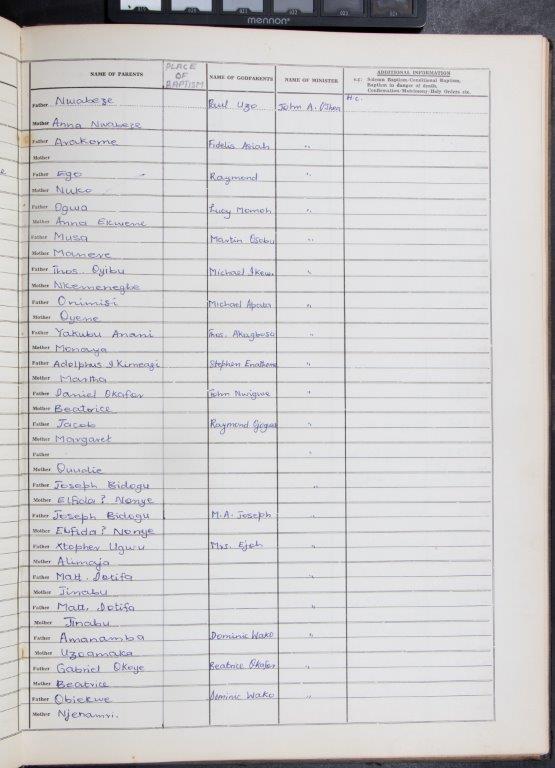 mennon
NAME OF PARENTS PLACE OF BAPTISM NAME OF GODPARENTS NAME OF MINISTER ADDITIONAL INFORMATION
e.g: Solemn Baptism-Conditional Baptism,
Baptism in danger of death,
Confirmation/Matrimony/Holy Orders etc.
Father Nwabeze Paul Uzo John A. O'Shea H.c.
Mother Anna Nwabeze
Father Arakome Fidelis Asiah "
Mother
Father Ego Raymond "
Mother Nuko
Father Ogwa Lucy Momoh "
Mother Anna Ekweme
Father Musa Martin Osobu "
Mother Manere
Father Thos. Oyibu Michael Ikew. "
Mother Nkemeneghe
Father Onimisi Michael Apata "
Mother Oyene
Father Yakubu Anani Thos. Akagbosu "
Mother Monaya
Father Adolphus Ikimeagi Stephen Enathome "
Mother Martha
Father Daniel Okafor John Nwigwe "
Mother Beatrice
Father Jacob Raymond "
Mother Margaret
Father "
Mother Ouudie
Father Joseph Bidogu "
Mother Elfida? Nonye
Father Joseph Bidogu M.A. Joseph "
Mother Elfida? Nonye
Father Xtopher Ugwu Mrs. Ejeh "
Mother Alimoja
Father Matt. Dotifa "
Mother Jinabu
Father Matt, Dotifa "
Mother Jinabu
Father Amanamba Dominic Wako "
Mother Uzoamaka
Father Gabriel Okoye Beatrice Okafor "
Mother Beatrice
Father Obiekwe Dominic Wako "
Mother Njenamri.